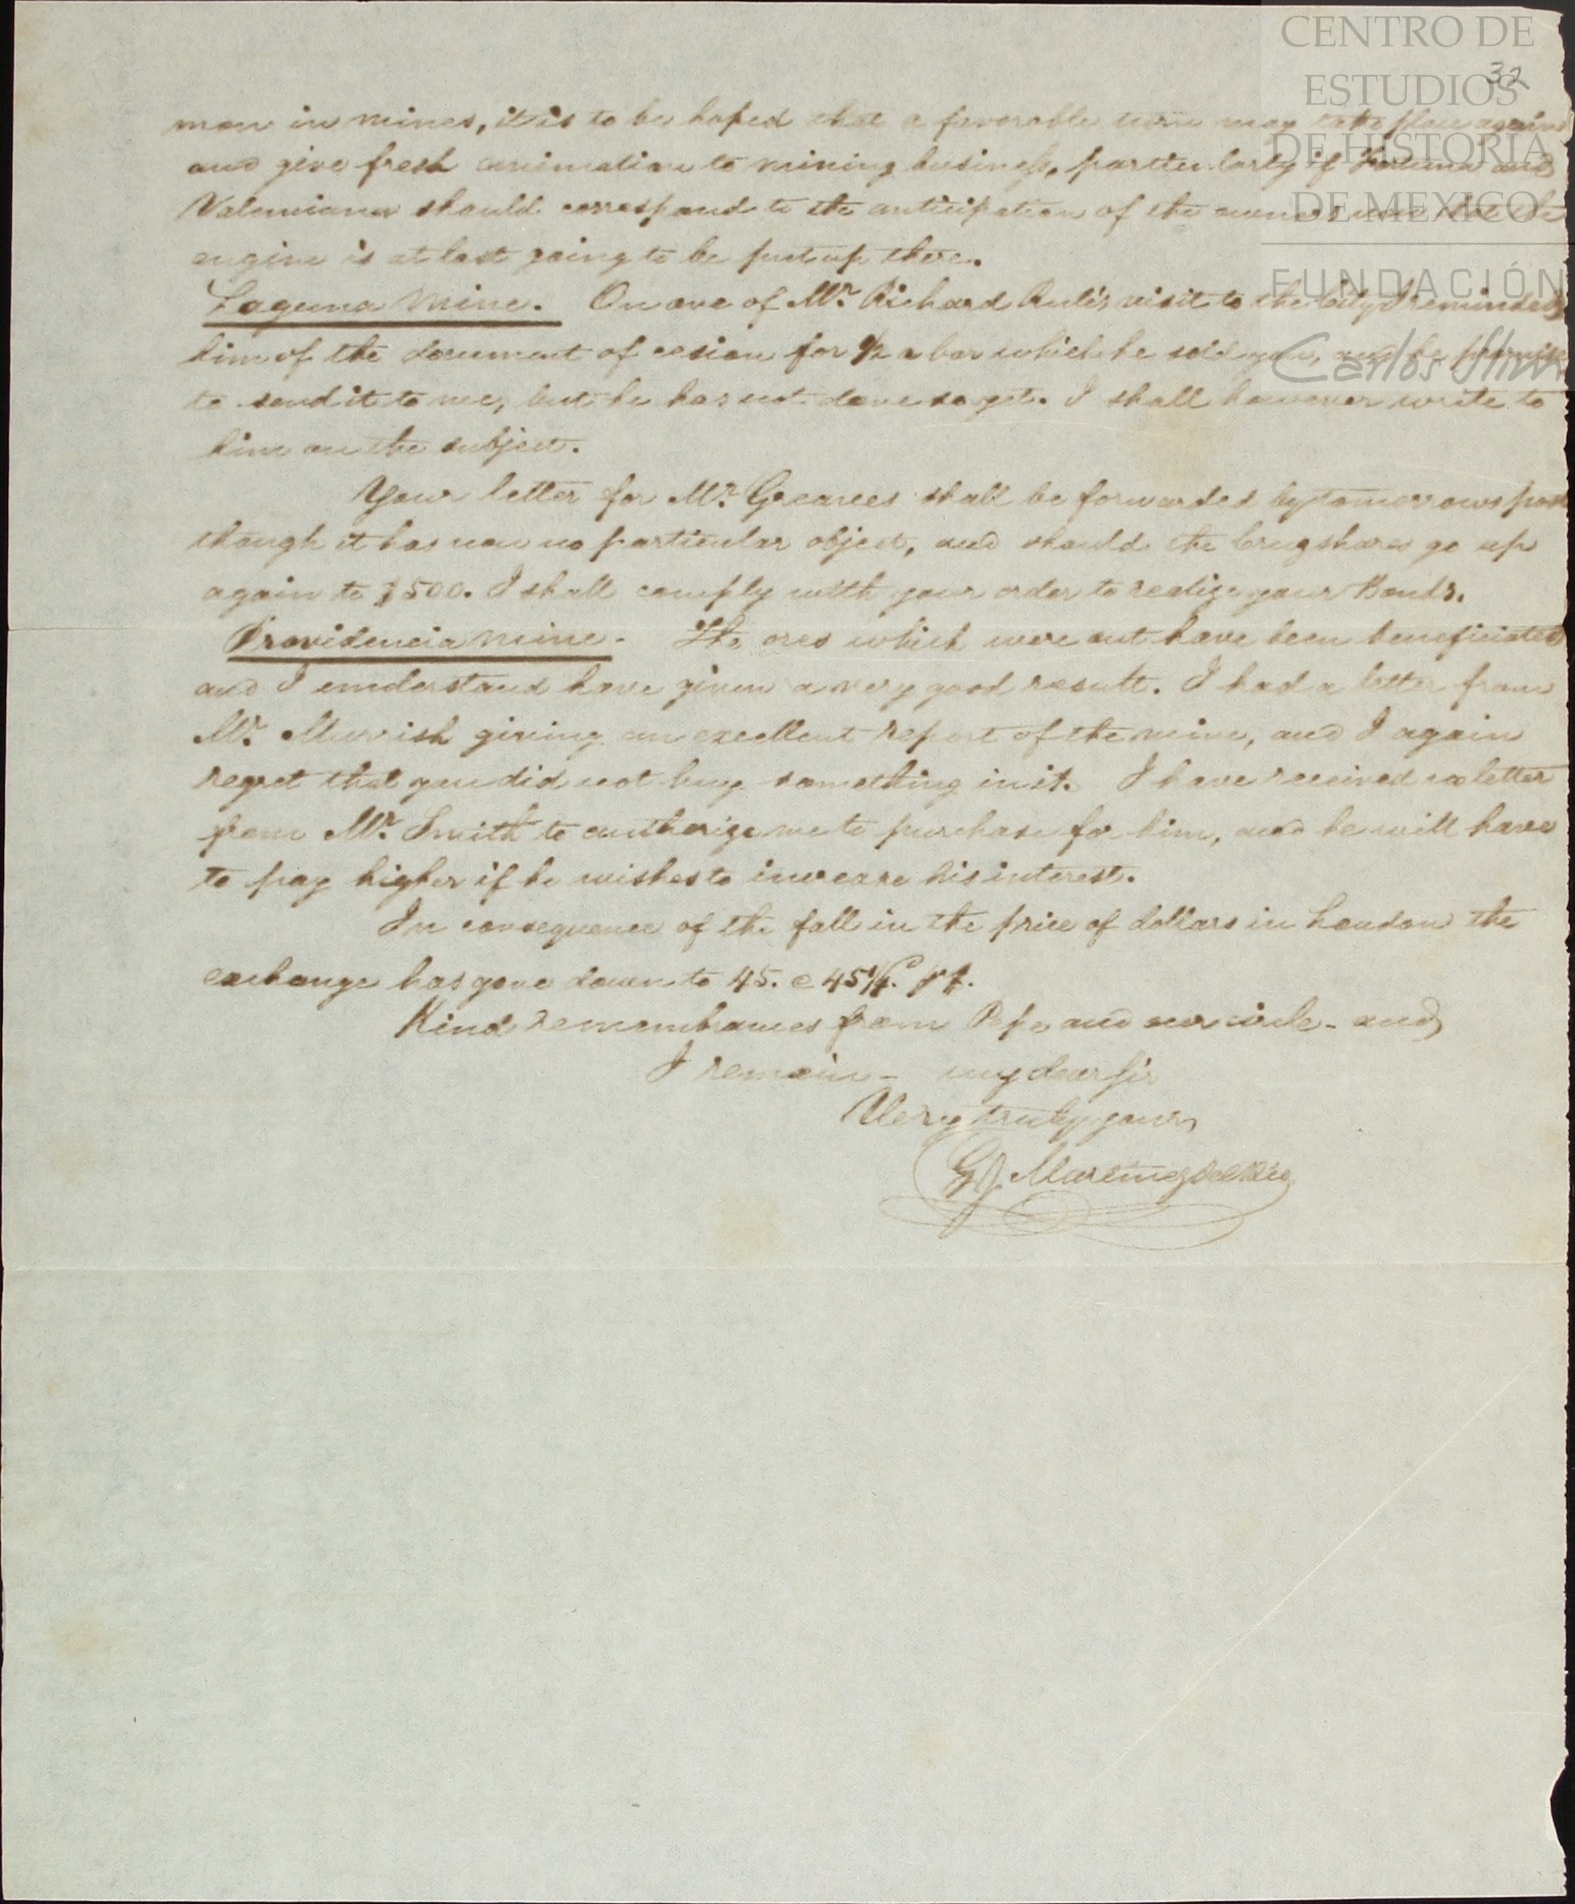 CENTRO DE
ESTUDIOS
DE HISTORIA
DE MEXICO
FUNDACIÓN
Carlos Slim
32
mon in mines, it is to be hoped that a favorable turn may take place again
and give fresh animation to mining business, particularly if Fortuna and
Valenciana should correspond to the anticipation of the owners now that the
engine is at last going to be put up there.
Laguna Mine. On one of Mr. Richard Rule's visit to the City I reminded
him of the document of cesion for 1/2 a bar which he sold you, and he promised
to send it to me, but he has not done so yet. I shall however write to
him on the subject.
Your letter for Mr. shall be forwarded by tomorrows post
though it has now no particular object, and should the shares go up
again to $500. I shall comply with your order to realize your Bonds.
Providencia mine. The ores which were out have been beneficiated
and I understand have given a very good result. I had a letter from
Mr. Murrish giving an excellent report of the mine, and I again
regret that you did not buy something in it. I have received a letter
from Mr. Smith to authorize me to purchase for him, and he will have
to pay higher if he wishes to increase his interest.
In consequence of the fall in the price of dollars in London the
exchange has gone down to 45. @ 45 1/4.
Kind remembrances from Pepe and our circle - and
I remain - my dear Sir
Very truly yours
G J Martinez del Rio